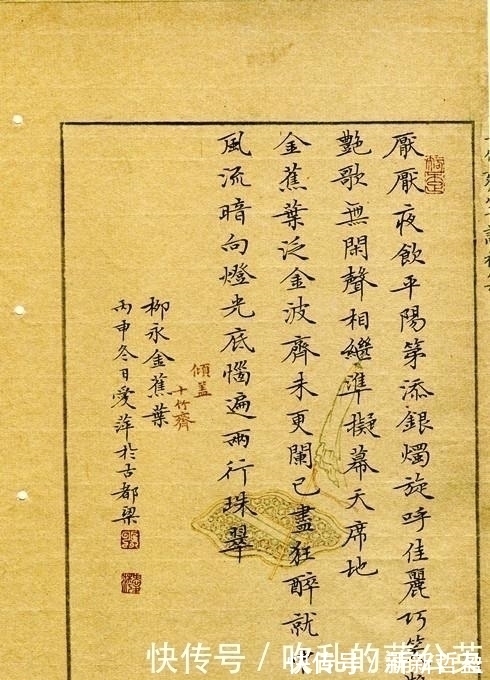 厭厭夜飲平陽第添銀燭旋呼佳麗巧笑
艷歌無閑聲相繼準擬幕天席地
金蕉葉泛金波齊未更闌已盡狂醉就
風流暗向燈光底惱遍兩行珠翠
傾蓋
十竹齋
柳永金蕉葉
丙申冬日愛萍於古都梁
快传号 / 吹乱的蒲公英